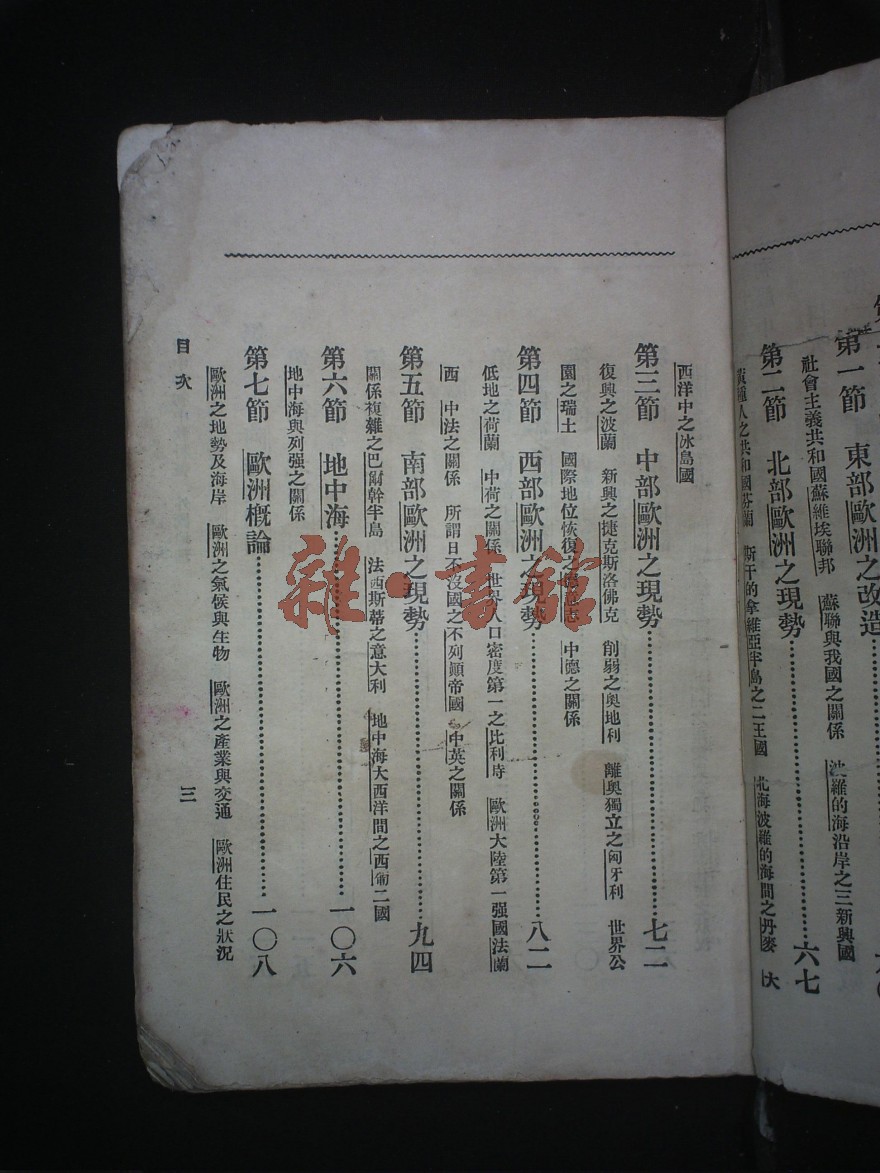 第一節　東部歐洲之改造
社會主義共和國蘇維埃聯邦　蘇聯與我國之關係　波羅的海沿岸之三新興國
第二節　北部歐洲之現勢 六七
黃種人之共和國芬蘭　斯干的拿維亞半島之二王國　北海波羅的海間之丹麥　大
西洋中之冰島國
第三節　中部歐洲之現勢 七二
復興之波蘭　新興之捷克斯洛佛克　削弱之奧地利　離奧獨立之匈牙利　世界公
園之瑞士　國際地位恢復之德意志　中德之關係
第四節　西部歐洲之現勢 八二
低地之荷蘭　中荷之關係　世界人口密度第一之比利時　歐洲大陸第一强國法蘭
西　中法之關係　所謂日不沒國之不列顛帝國　中英之關係
第五節　南部歐洲之現勢 九四
關係複雜之巴爾幹半島　法西斯蒂之意大利　地中海大西洋間之西葡二國
第六節　地中海 一〇六
地中海與列强之關係
第七節　歐洲概論 一〇八
歐洲之地勢及海岸　歐洲之氣候與生物　歐洲之產業與交通　歐洲住民之狀況
目次　三
雜·書館